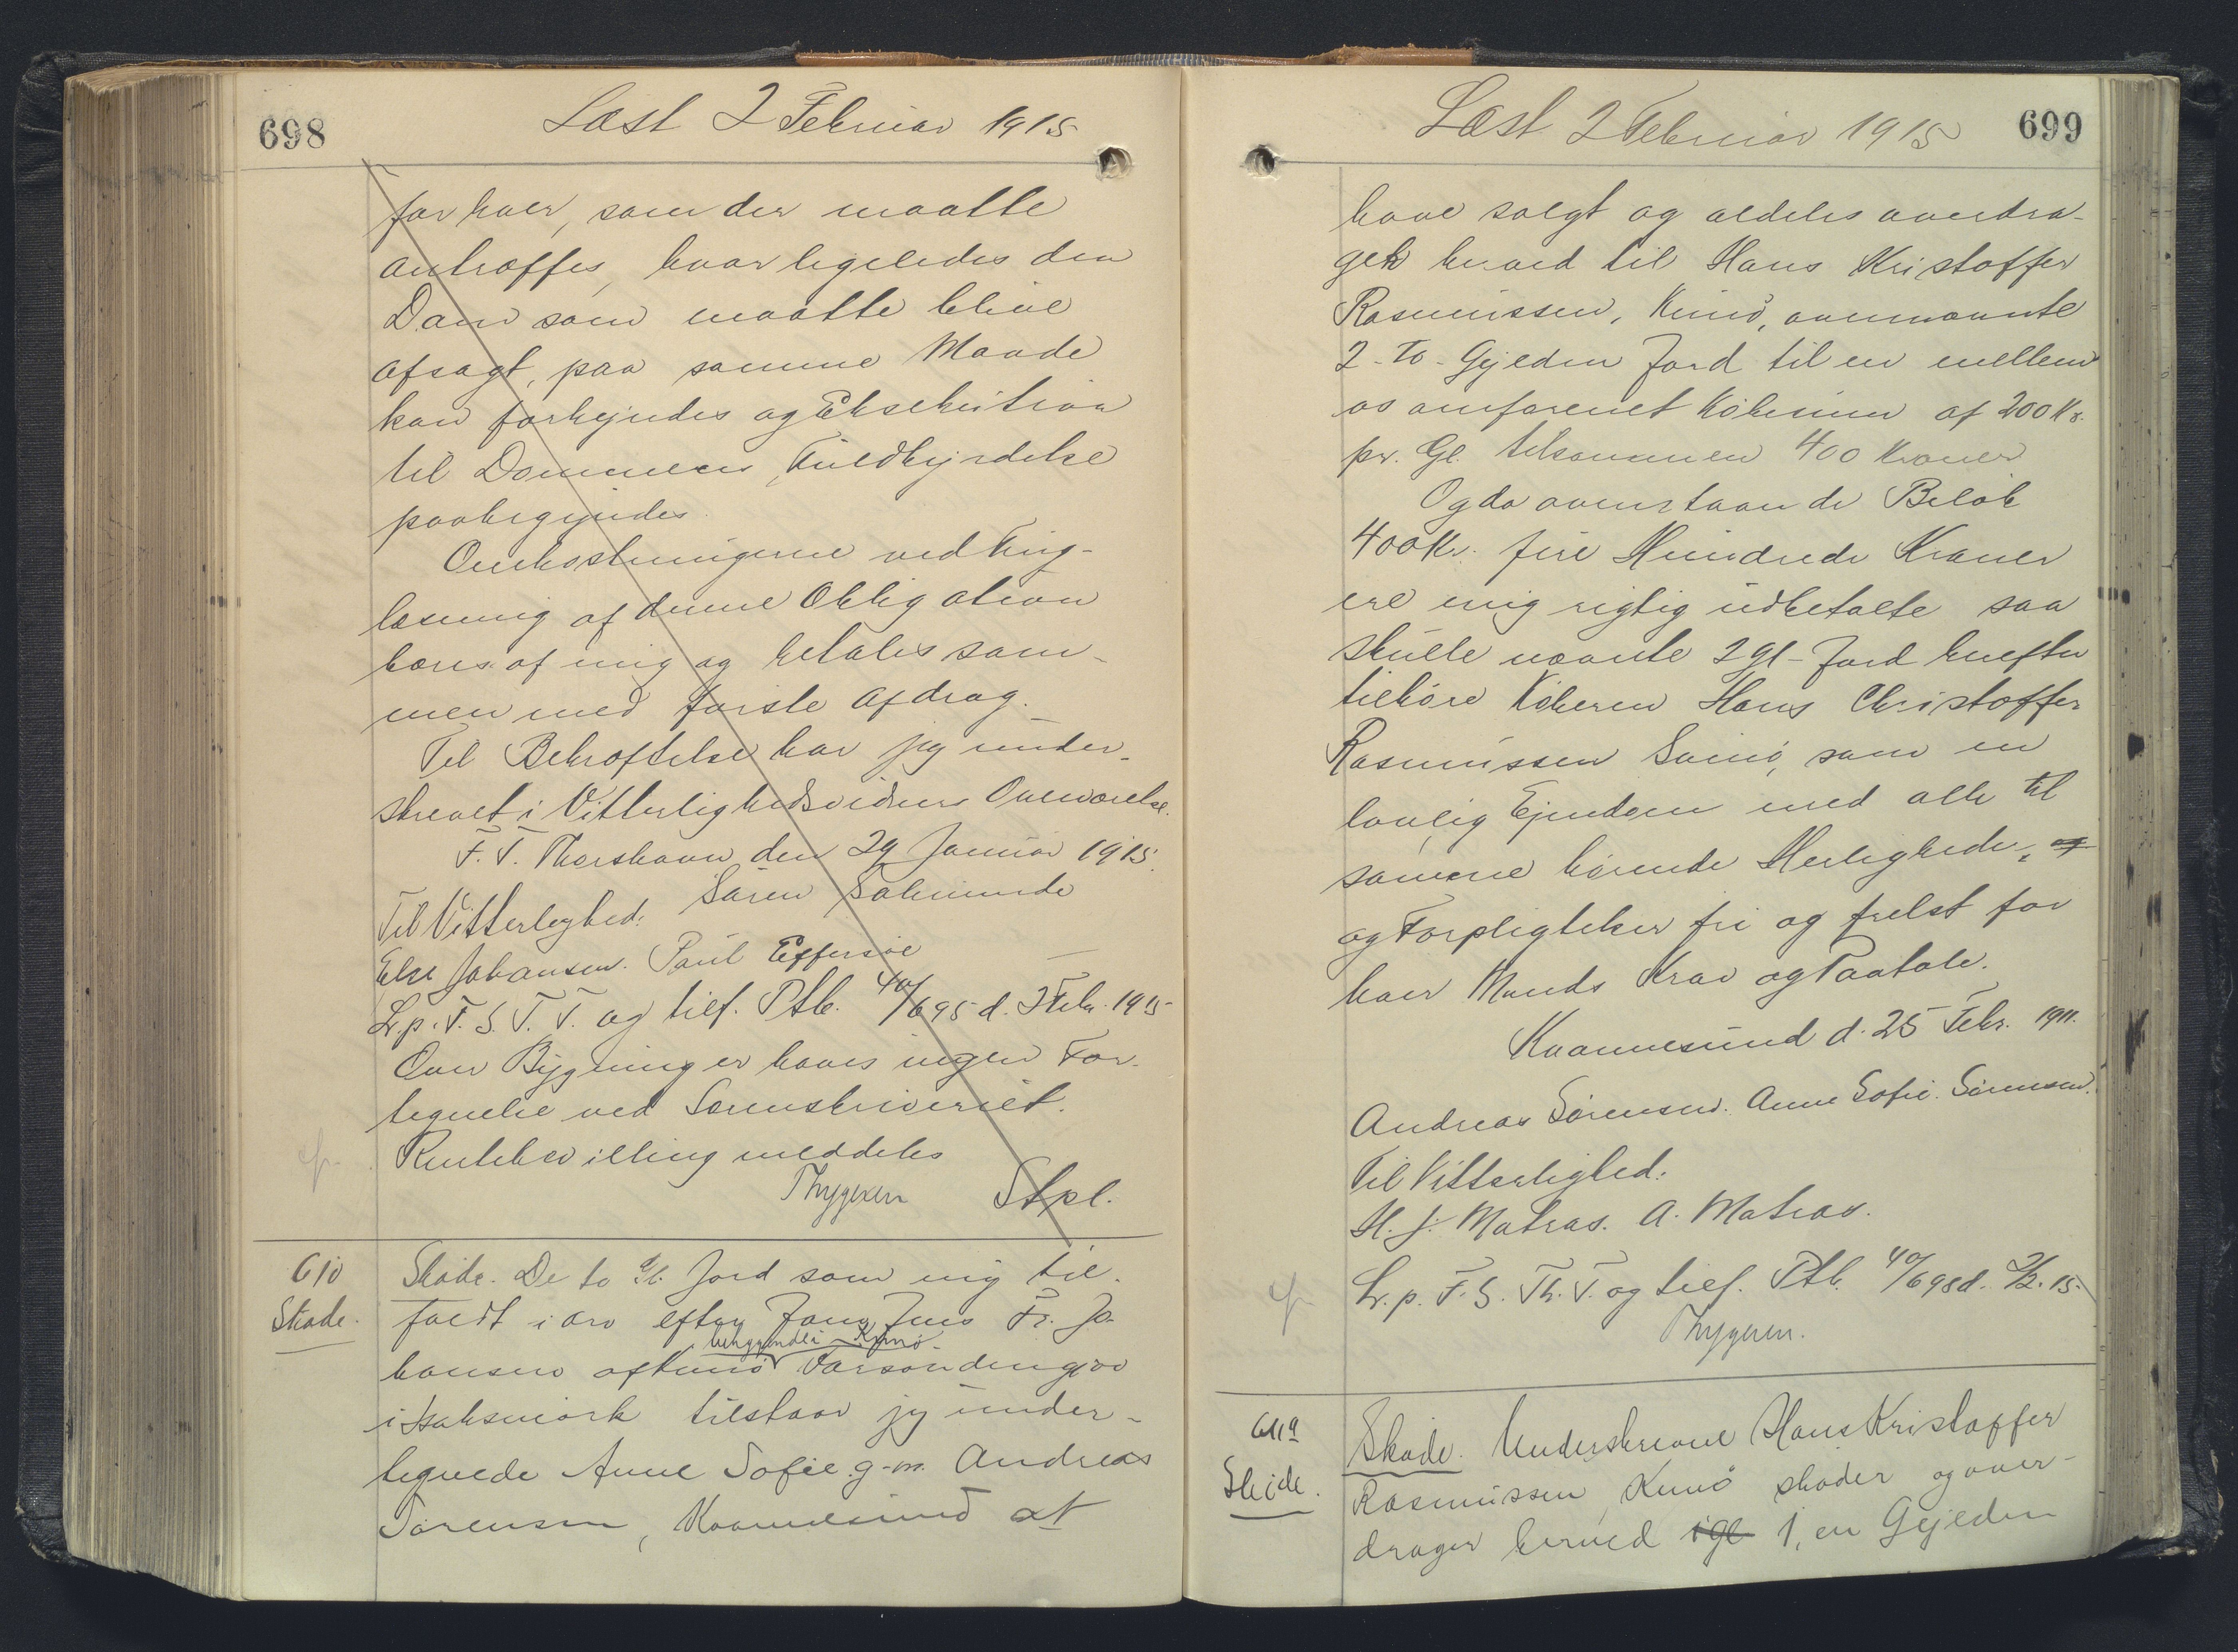 698
Læst 2 Februar 1915
for hver, som der maatte
antræffes, hvorligeledes den
Dom som maatte blive
afsagt, paa samme Maade
kan forkyndes og Eksekution
til Dommens Fuldbyrdelse
paabegyndes.
Omkostningerne ved Ting-
læsning af denne Obligation
bæres af mig og betales sam-
men med første Afdrag.
Til Bekræftelse har jeg under-
skrevet i Vitterlighedsvidners Overværelse.
F. T. Thorshavn den 29 Januar 1915.
Søren
Til Vitterlighed:
Else Johansen. Paul Effersøe
Lr. p. F. S. T. T. og tilf. Ptb. 40/695 d. 2 Feb. 1915
Over Bygninger haves ingen For-
tegnelse ved Sorenskriveriet.
Rentebevilling meddeles
Thygesen Stpl.
610
Skøde.
Skøde. De to Gl. Jord som mig til-
faldt i Arv efter Jens Fr. Jo-
hansen af Kunø
beliggende i Kunø
i tilstaar jeg under-
tegnede Anne Sofie g-m. Andreas
Sørensen, Kvannesund at
699
Læst 2 Februar 1915
have solgt og aldeles overdra-
get herved til Hans Kristoffer
Rasmussen, Kunø, ovennævnte
2 - to - Gyllden Jord til en mellem
os omforenet Købesum af 200 Kr.
pr. Gl. tilsammen 400 Kroner
Og da ovenstaaende Beløb
400 Kr. fire Hundrede Kroner
ere mig rigtig udbetalte saa
skulle nævnte 2 Gl - Jord herefter
tilhøre Køberen Hans Christoffer
Rasmussen som en
lovlig Ejendom med alle til
samme hørende Herligheder, og
og Forpligtelser fri og frelst for
hver Mands Krav og Paatale.
Kvannesund d. 25 Febr. 1911.
Andreas Sørensen. Anne Sofie Sørensen.
Til Vitterlighed:
H. J. Matras. A. Matras.
Lr. p. F. S. Th. T. og tilf. Ptb. 40/698 d. 2/2. 15.
Thygesen.
611a
Skøde.
Skøde. Underskrevne Hans Kristoffer
Rasmussen, Kunø skøder og over-
drager herved 1 gl 1, en Gyllden